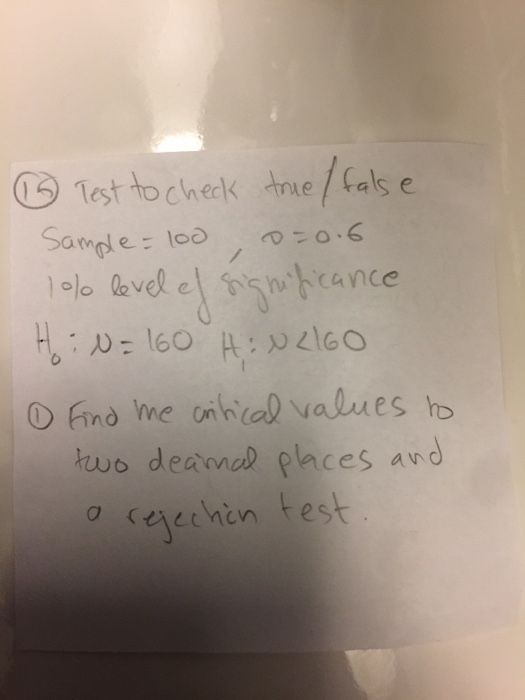 15 Test to check true/false
Sample = 100, σ = 0.6
1% level of significance
H₀: μ = 160 H₁: μ < 160
① Find the critical values to
two decimal places and
a rejection test.